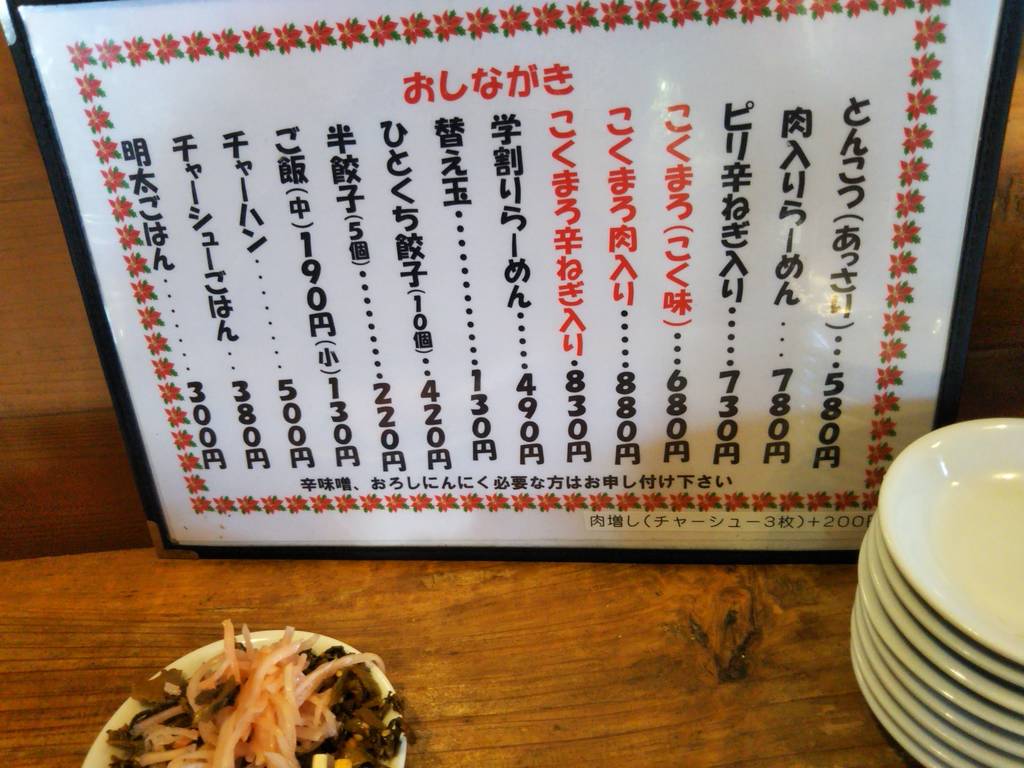 おしながき
とんこつ(あっさり)...580円
肉入りらーめん....780円
ピリ辛ねぎ入り......730円
こくまろ(こく味)...680円
こくまろ肉入り.....880円
こくまろ辛ねぎ入り.830円
学割りらーめん......490円
替え玉...........130円
ひとくち餃子(10個)..420円
半餃子(5個)........220円
ご飯(中)190円(小)130円
チャーハン........500円
チャーシューごはん..380円
明太ごはん.......300円
辛味噌、おろしにんにく必要な方はお申し付け下さい
肉増し(チャーシュー3枚)+200円